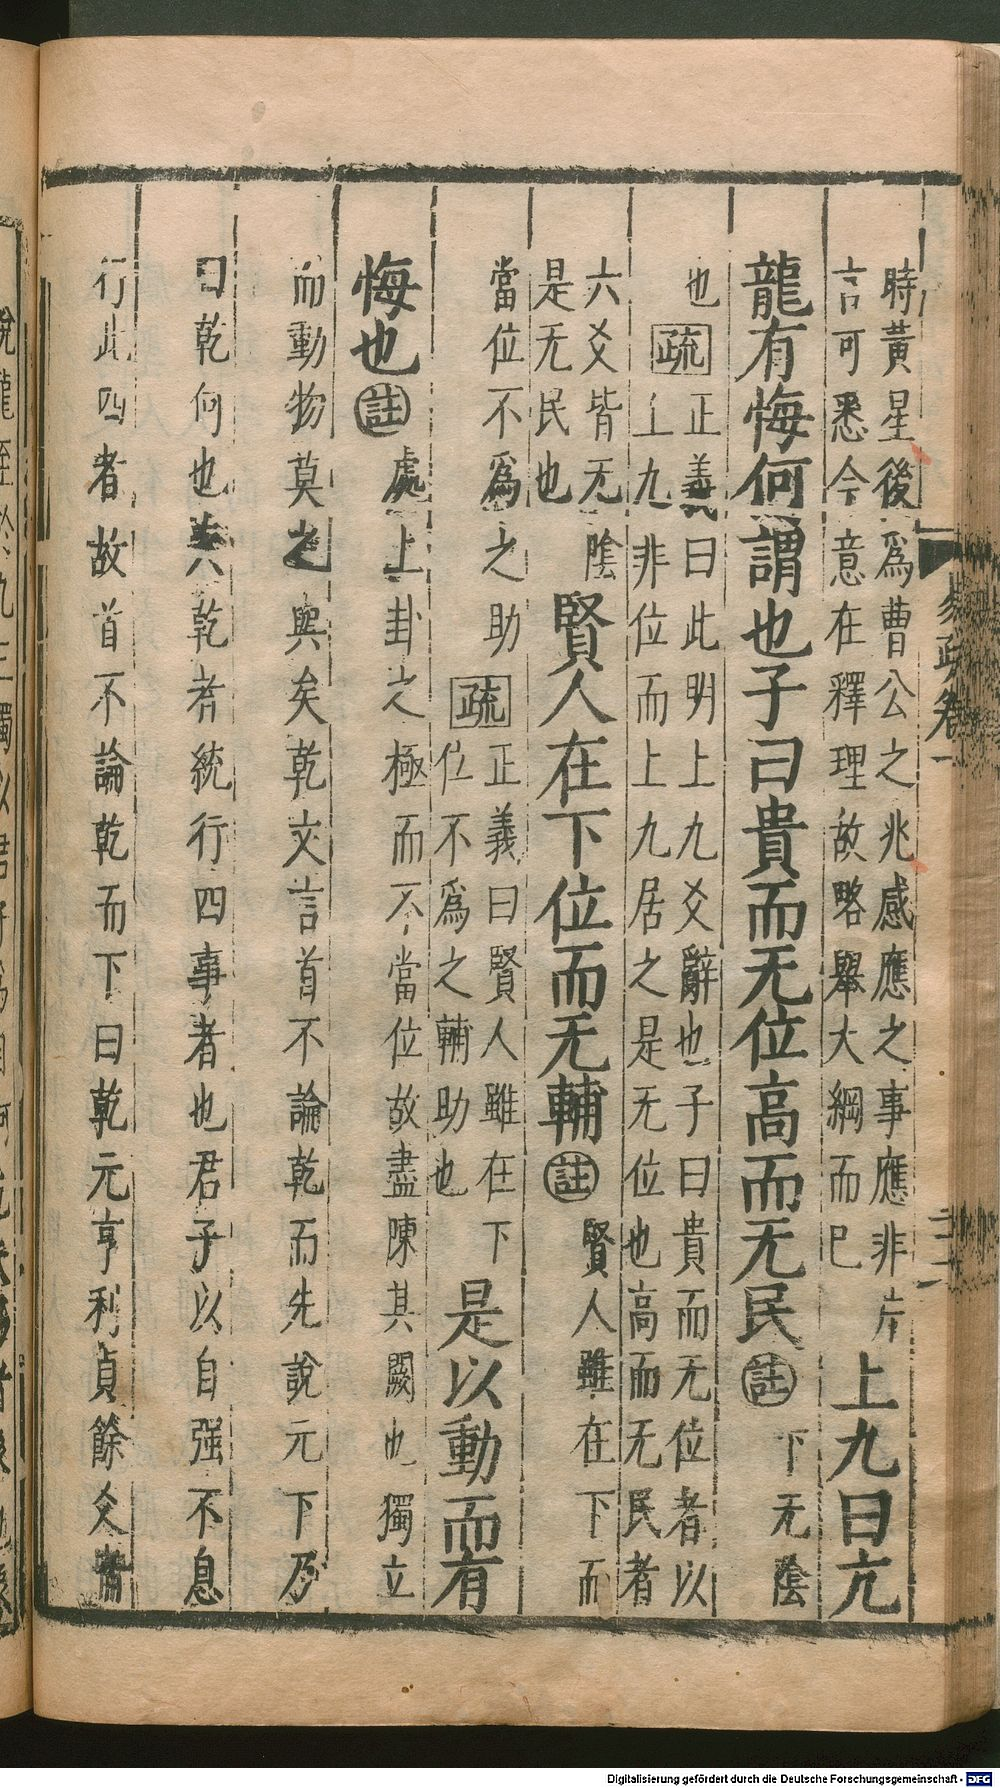 時黃星後爲曹公之兆感應之事應非片
言可悉今意在釋理故略舉大綱而已
上九曰亢
龍有悔何謂也子曰貴而无位高而无民
註
下无陰
也
疏
正義曰此明上九爻辭也子曰貴而无位者以
上九非位而上九居之是无位也高而无民者
六爻皆无陰
是无民也
賢人在下位而无輔
註
賢人雖在下而
當位不爲之助
疏
正義曰賢人雖在下
位不爲之輔助也
是以動而有
悔也
註
處上卦之極而不當位故盡陳其闕也獨立
而動物莫之與矣乾文言首不論乾而先說元下乃
曰乾何也夫乾者統行四事者也君子以自强不息
行此四者故首不論乾而下曰乾元亨利貞餘爻皆
易疏卷一
二二
Digitalisierung gefördert durch die Deutsche Forschungsgemeinschaft - DFG